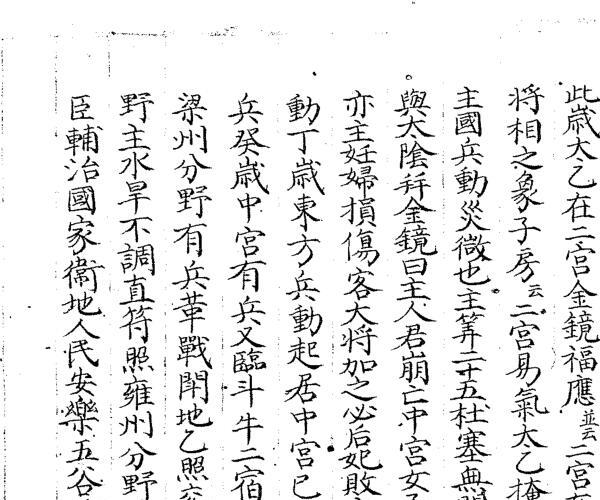 此歲太乙在二宮金鏡福應並云二宮
將相之象子房云二宮易氣太乙掩
主國兵動災微也主筭二十五杜塞無
與太陰并金鏡曰主人君崩亡中宮女
亦主妊婦損傷客大將加之必后妃敗
動丁歲東方兵動起居中宮已
兵癸歲中宮有兵又臨斗牛二宿
梁州分野有兵革戰鬪地乙照
野主水旱不調直符照雍州分野
臣輔治國家衞地人民安樂五谷